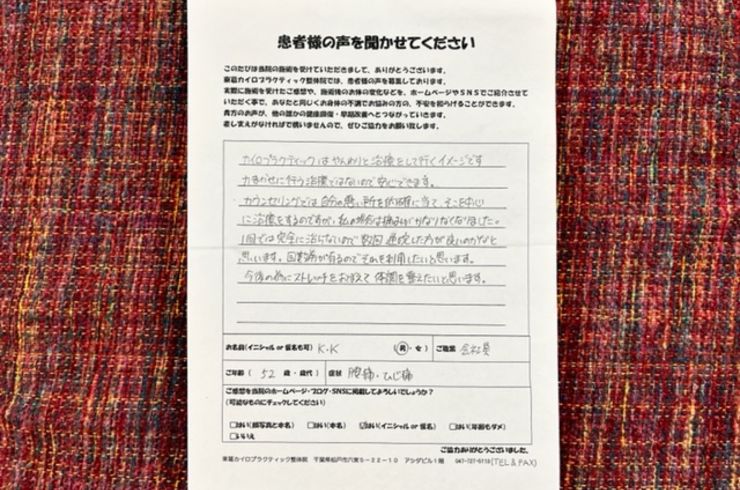 患者様の声を聞かせてください
このたびは当院の施術を受けていただきまして、ありがとうございます。
東葛カイロプラクティック整体院では、患者様の声を募集しております。
実際に施術を受けたご感想や、施術後のお体の変化などを、ホームページやSNSでご紹介させて
いただく事で、あなたと同じくお身体の不調でお悩みの方の、不安を和らげることができます。
貴方のお声が、他の誰かの健康回復・早期改善へとつながっていきます。
差し支えがなければで構いませんので、ぜひご協力をお願い致します。
カイロプラクティックはやんわりと治療をして行くイメージです
力まかせに行う治療ではないので安心できます。
カウンセリングでは自分の悪い所を的確に当て、そこを中心
に治療をするのですが、私の場合は痛みがかなりなくなりました。
1回では完全に治らないので数回通院した方が良いのかなと
思います。回数券が有るのでそれを利用したいと思います。
今後の為にストレッチをおぼえて体調を整えたいと思います。
お名前(イニシャル or 仮名も可) K・K (男・女) ご職業 会社員
ご年齢 ( 52 歳・歳代) 症状 腰痛・ひじ痛
ご感想を当院のホームページ・ブログ・SNSに掲載してよろしいでしょうか？
(可能なものにチェックしてください)
□はい(顔写真と本名) □はい(本名) ☑はい(イニシャル or 仮名) □はい(年齢もダメ)
□いいえ
ご協力ありがとうございました。
東葛カイロプラクティック整体院 千葉県松戸市六実5－22－10 アシダビル1階 047-727-5115(TEL&FAX)